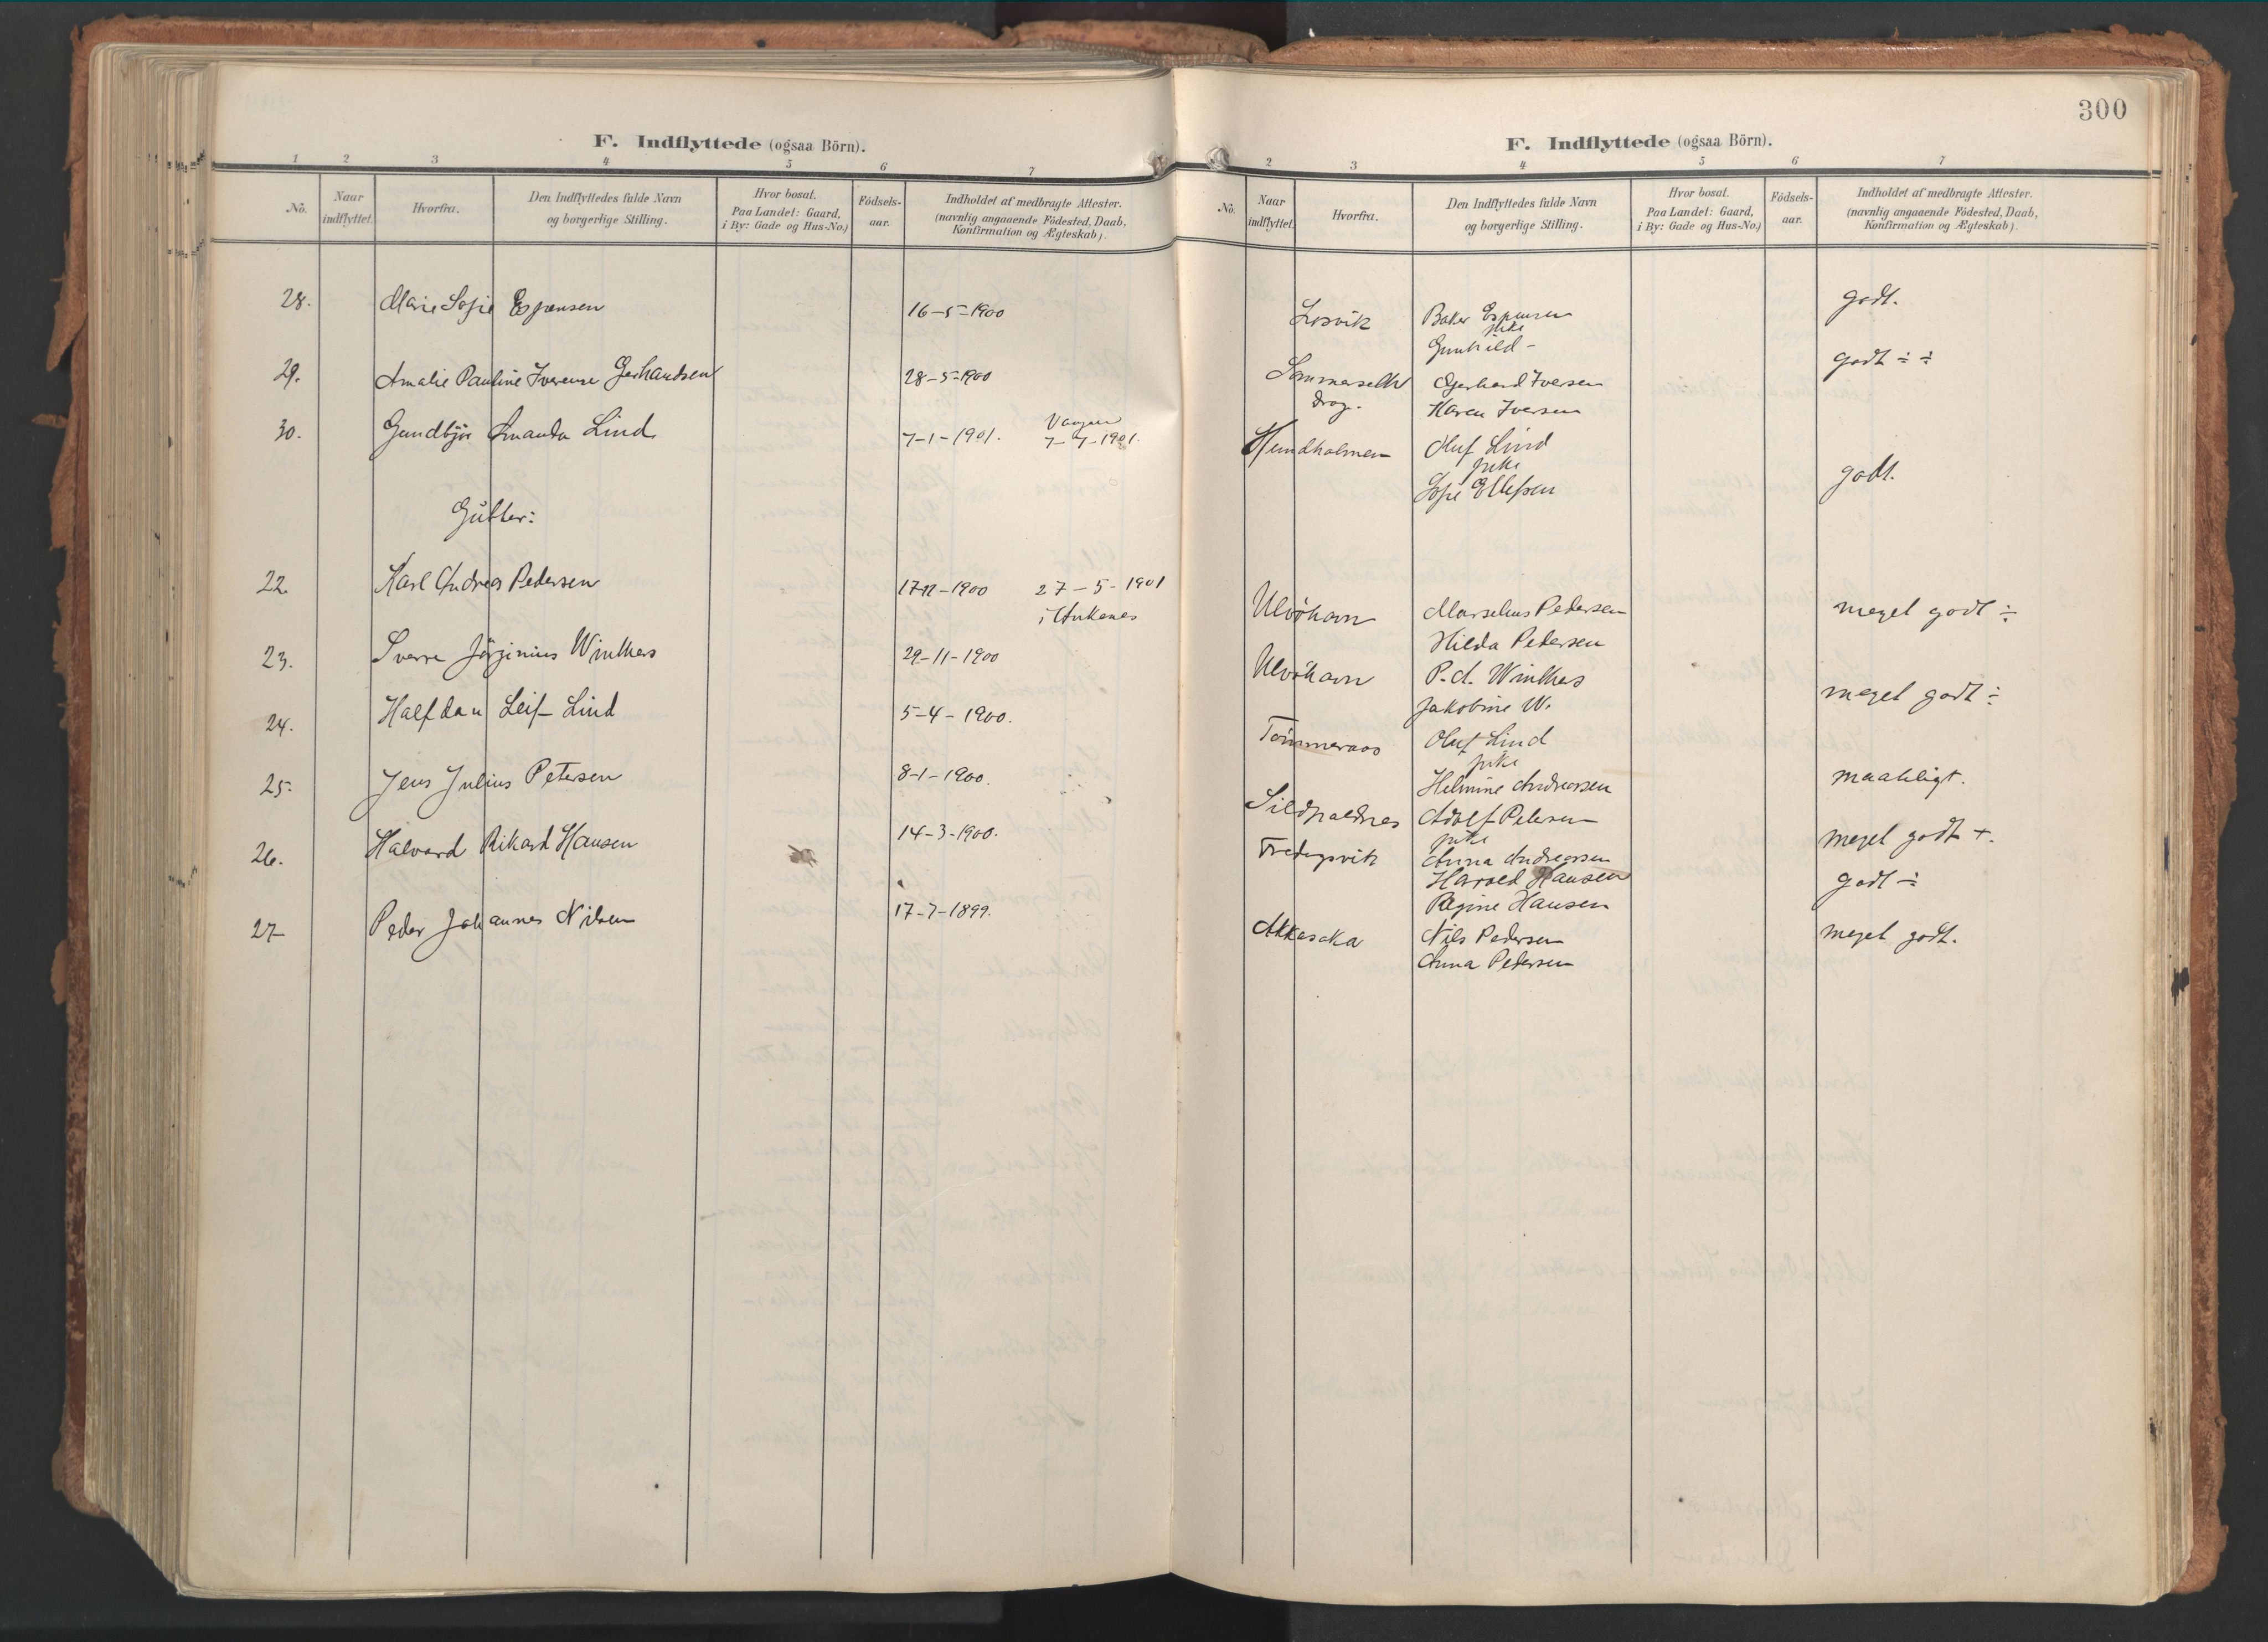 F. Indflyttede (ogsaa Börn).
1 2 3 4 5 6 7
No. Naar indflyttet. Hvorfra. Den Indflyttedes fulde Navn og borgerlige Stilling. Hvor bosat. Paa Landet: Gaard, i By: Gade og Hus-No.) Födsels-aar. Indholdet af medbragte Attester. (navnlig angaaende Födested, Daab, Konfirmation og Ægteskab).
28. Marie Sofie Espensen 16-5-1900
29. Amalie Pauline Iverense Gerhardsen 28-5-1900
30. Gundbjør Amanda Lind 7-1-1901. Vaagen 7-7-1901.
Gutter:
22. Karl Andreas Pedersen 17-11-1900 27-5-1901
i Ankenes
23. Sverre Jørginius Winthers 29-11-1900
24. Halfdan Leif Lind 5-4-1900.
25. Jens Julius Petersen 8-1-1900.
26. Halvard Rikard Hansen 14-3-1900.
27 Peder Johannes Nilsen 17-7-1899.
300
F. Indflyttede (ogsaa Börn).
2 3 4 5 6 7
No. Naar indflyttet. Hvorfra. Den Indflyttedes fulde Navn og borgerlige Stilling. Hvor bosat. Paa Landet: Gaard, i By: Gade og Hus-No.) Födsels-aar. Indholdet af medbragte Attester. (navnlig angaaende Födested, Daab, Konfirmation og Ægteskab).
Losvik Baker Espensen godt.
pike
Gunhild -
Sommerseth Gerhard Iversen godt ÷ ÷
drag. Karen Iversen
Hundholmen Oluf Lind
pike
Sofie Ellefsen godt.
Ulvöhavn Marselius Pedersen meget godt ÷
Hilda Pedersen
Ulvöhavn P. A. Winthers meget godt ÷
Jakobine W.
Tömmeraas Oluf Lind
pike
Helmine Andreasen maadeligt.
Sildpaldnes Adolf Petersen
pike
Anna Andreasen meget godt +.
Harald Hansen godt ÷
Regine Hansen
Nils Pedersen meget godt.
Anna Pedersen